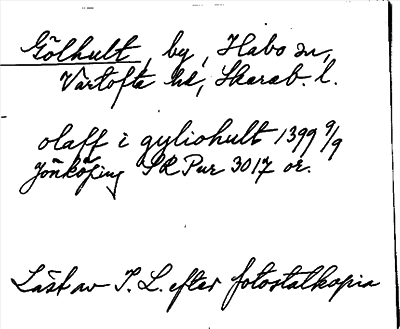 Gölhult, by, Habo sn,
Vartofta hd, Skarab. l.
olaff i gyliohult 1399 9/9
Jönköping SRPur 3017 or.
Läst av I. L. efter fotostatkopia